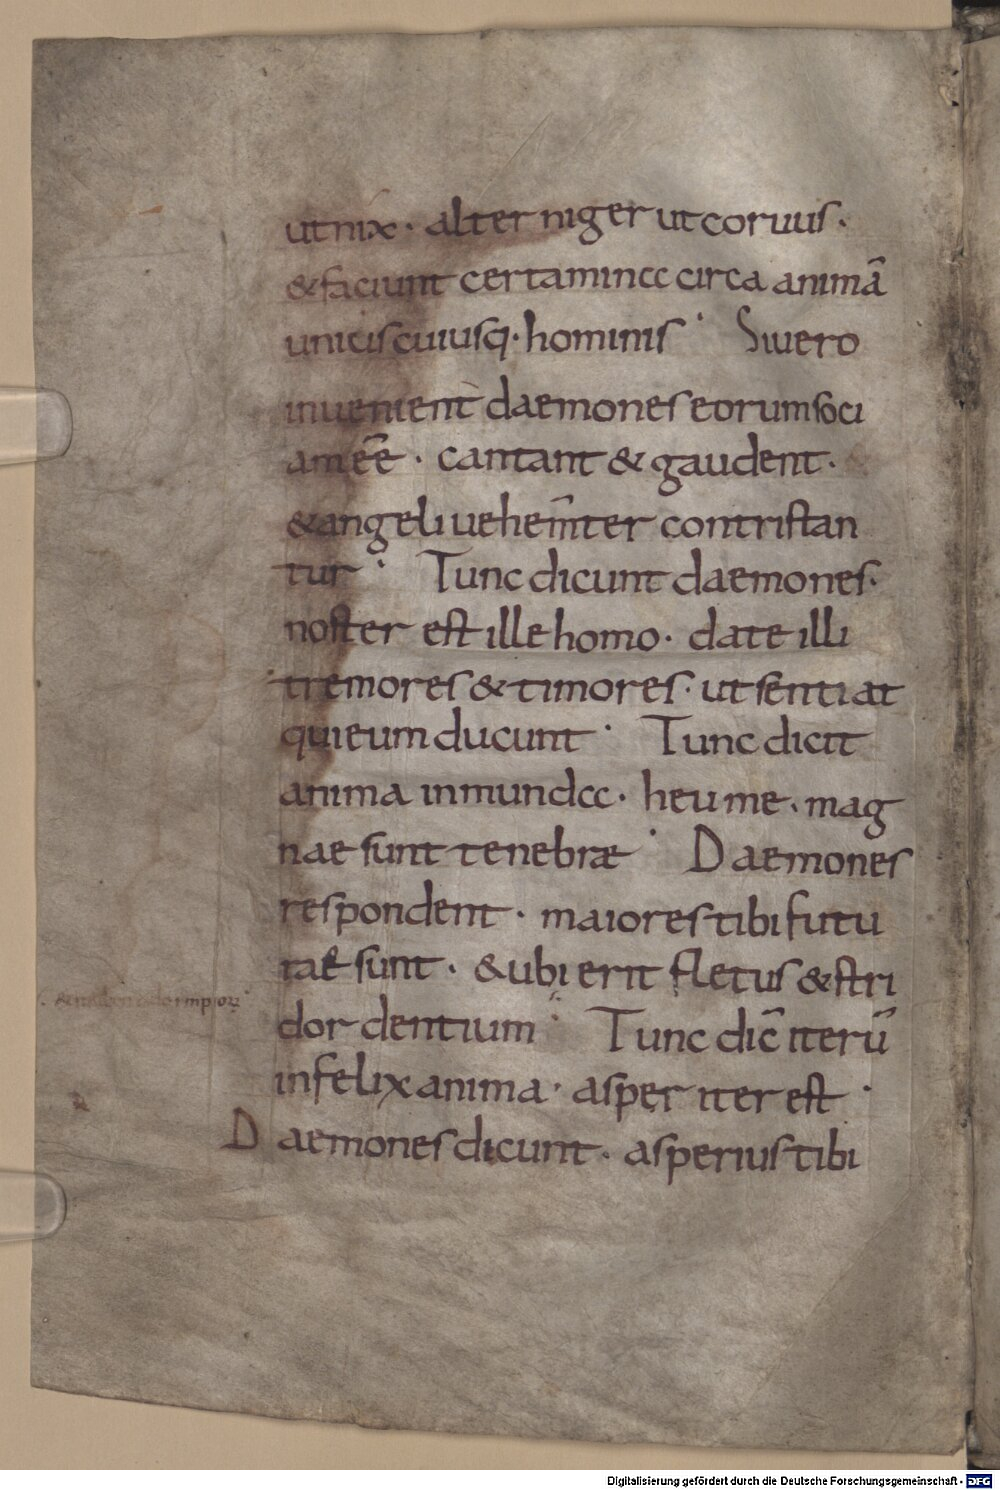 ut nix · alter niger ut coruus ·
& faciunt certamina circa animā
uniuscuiusq· hominis · Si uero
inuenient daemones eorum soci
am eē̄ · cantant & gaudent ·
& angeli uehem̄ter contristan
tur · Tunc dicunt daemones ·
noster est ille homo · date illi
tremores & timores · ut sentiat
qui eum ducunt · Tunc dicit
anima inmunda · heu me · mag
nae sunt tenebræ · Daemones
respondent · maiores tibi futu
rae sunt · & ubi erit fletus & stri
dor dentium · Tunc dic̄ iterū
infelix anima · asper iter est ·
Daemones dicunt · asperius tibi
Digitalisierung gefördert durch die Deutsche Forschungsgemeinschaft - DFG